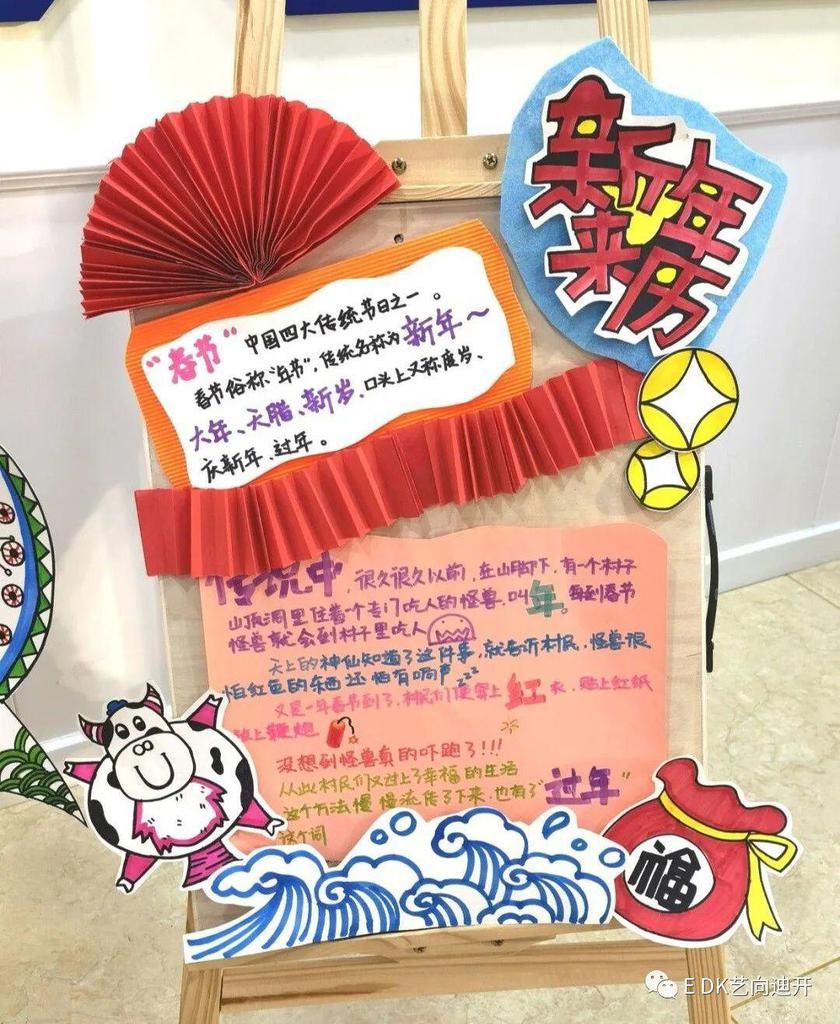 新年
来历
“春节”中国四大传统节日之一。
春节俗称“年节”,传统名称为新年~
大年、天腊、新岁,口头上又称度岁、
庆新年、过年。
传说中,很久很久以前,在山脚下,有一个村子
山顶洞里住着一个专门吃人的怪兽,叫年。每到春节
怪兽就会到村子里吃人
天上的神仙知道了这件事,就告诉村民,怪兽很
怕红色的东西还怕有响声zzz
又是一年春节到了,村民们便穿上红衣,贴上红纸
放上鞭炮
没想到怪兽真的吓跑了!!!
从此村民们又过上了幸福的生活
这个方法慢慢流传了下来,也有了“过年”
这个词
福
EDK艺向迪开